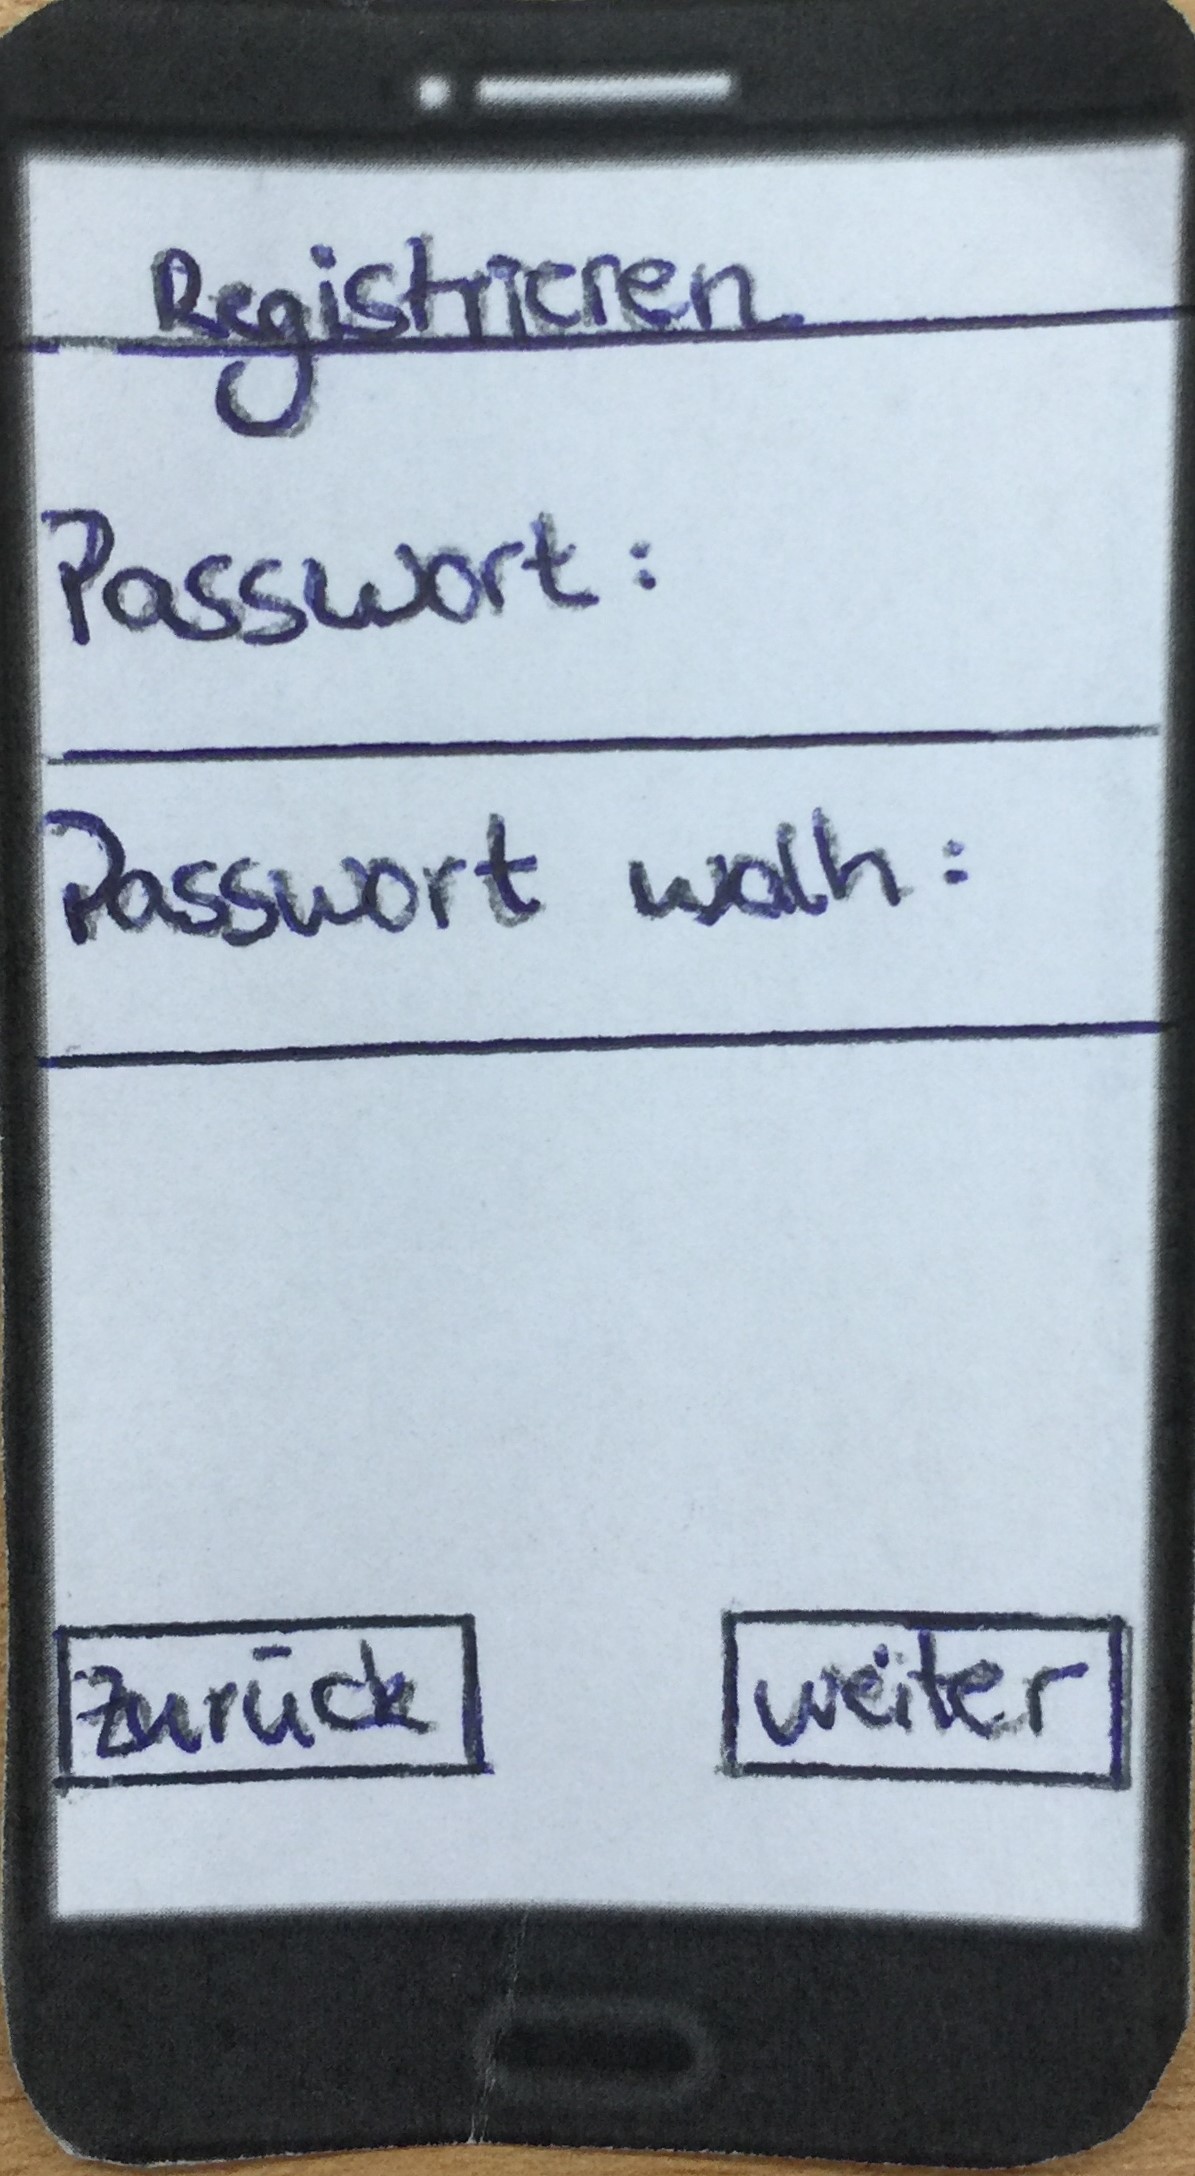 Registrieren
Passwort:
Passwort walh:
zurück
weiter